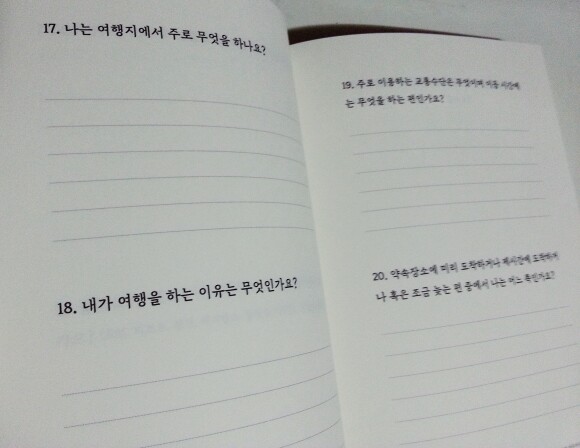 17. 나는 여행지에서 주로 무엇을 하나요?
18. 내가 여행을 하는 이유는 무엇인가요?
19. 주로 이용하는 교통수단은 무엇이며 이동 시간에
는 무엇을 하는 편인가요?
20. 약속장소에 미리 도착하거나 제시간에 도착하거
나 혹은 조금 늦는 편 중에서 나는 어느 쪽인가요?